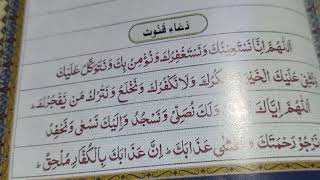 دُعَاءِ قُنُوت
اَللّٰهُمَّ اِنَّا نَسْتَعِيْنُكَ وَنَسْتَغْفِرُكَ وَنُؤْمِنُ بِكَ وَنَتَوَكَّلُ عَلَيْكَ
وَنُثْنِيْ عَلَيْكَ الْخَيْرَ كُرُكَ وَلَا نَكْفُرُكَ وَنَخْلَعُ وَنَتْرُكُ مَنْ يَّفْجُرُكَ
اَللّٰهُمَّ اِيَّاكَ وَلَكَ نُصَلِّيْ وَنَسْجُدُ وَاِلَيْكَ نَسْعٰى وَنَحْفِدُ
نَرْجُوْ رَحْمَتَكَ وَنَخْشٰى عَذَابَكَ اِنَّ عَذَابَكَ بِالْكُفَّارِ مُلْحِقٌ